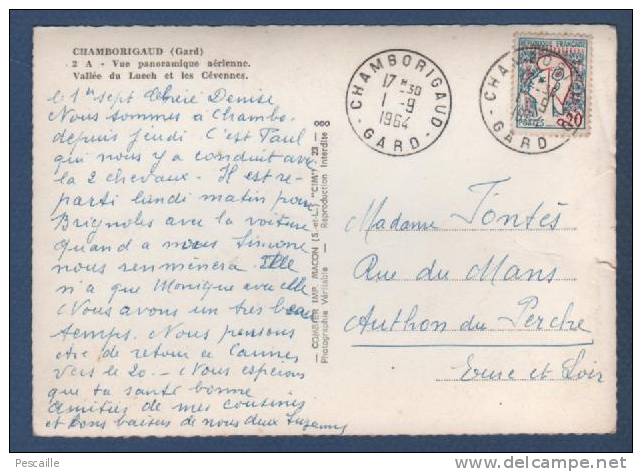 CHAMBORIGAUD (Gard)
2 A - Vue panoramique aérienne.
Vallée du Luech et les Cévennes.
le 1er sept Chère Denise
Nous sommes à Chambo.
depuis jeudi C'est Paul
qui nous y a conduit avec
la 2 chevaux. Il est re-
parti lundi matin pour
Brignoles avec la voiture
quand a nous Simone
nous remmènera. Elle
n'a que Monique avec elle
Nous avons un très beau
temps. Nous pensons
être de retour à Cannes
vers le 20. - Nous espérons
que ta santé bonne
amitiés de mes cousines
et bons baisers de nous deux Suzanne
— COMBIER IMP. MACON (S.-et-L.) "CIM" 23 — 880
Photographie Véritable - Reproduction Interdite
CHAMBORIGAUD
17 H 30
1 - 9
1964
- GARD -
REPUBLIQUE FRANÇAISE
0,20
POSTES
CHAMBORIGAUD
- GARD -
Madame Tontés
Rue du Mans
Authon du Perche
Eure et Loir
Pescaille
www.delcampe.net